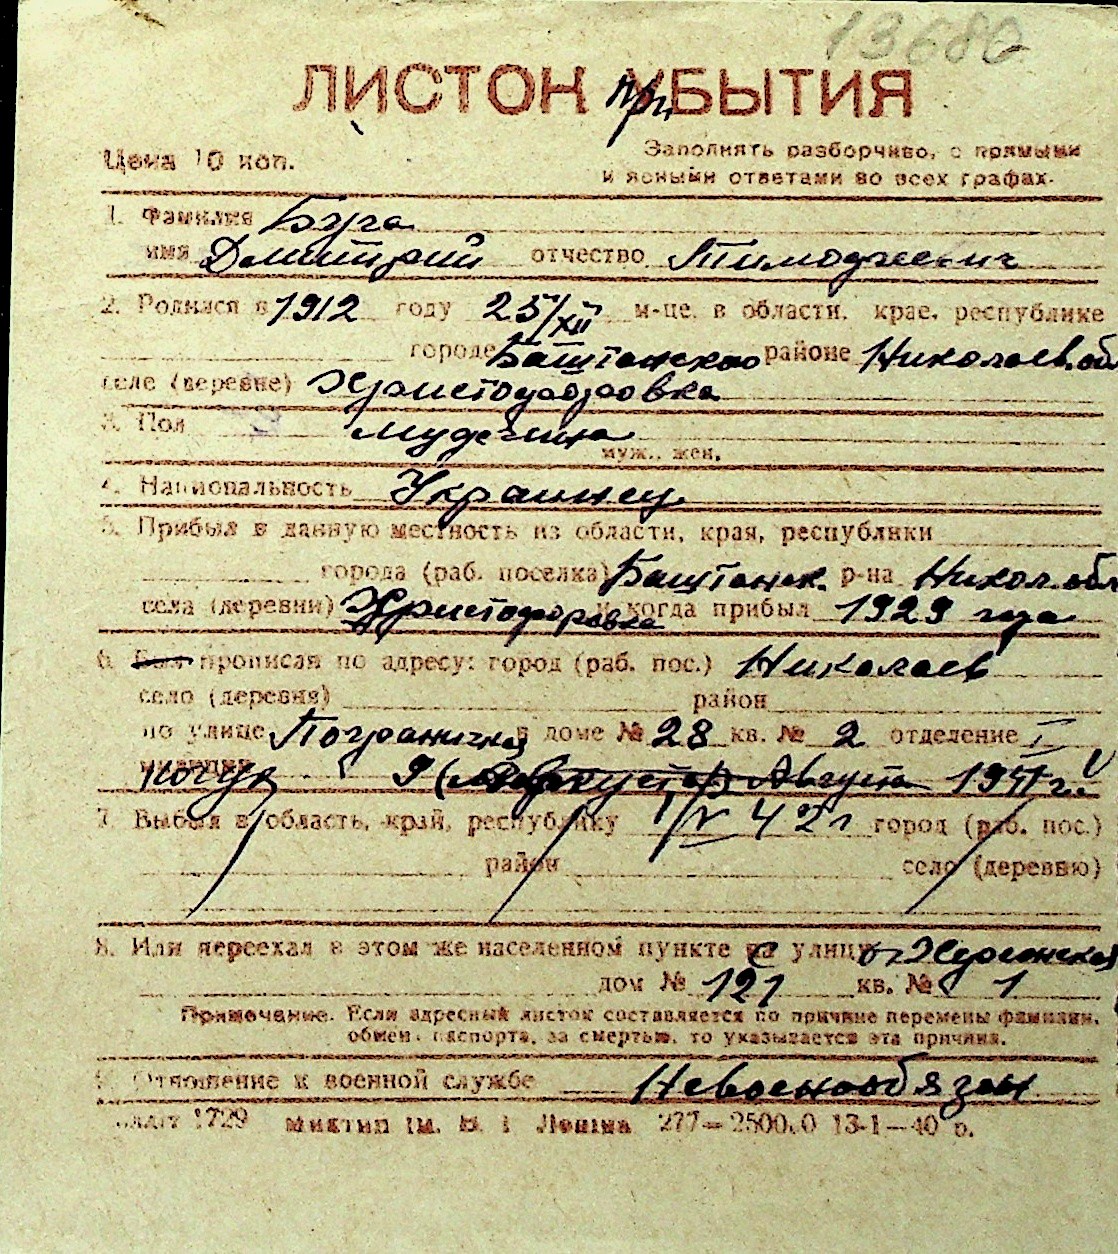 13680
ЛИСТОК при УБЫТИЯ
Цена 10 коп.
Заполнять разборчиво, с прямыми
и ясными ответами во всех графах.
1. Фамилия Буга
имя Дмитрий отчество Тимофеевич
2. Родился в 1912 году 25/XII м-це, в области, крае, республике
городе Баштанского районе Николаев. обл
селе (деревне) Христофоровка
3. Пол мужчина
муж., жен.
4. Национальность Украинец
5. Прибыл в данную местность из области, края, республики
города (раб. поселка) Баштанск. р-на Никол. обл
села (деревни) Христофоровка и когда прибыл 1929 года
6. Был прописан по адресу: город (раб. пос.) Николаев
село (деревня) район
по улице Пограничная в доме № 28 кв. № 2 отделение I
милиции 9 Августа 1941 г.
7. Выбыл в область, край, республику 1/IV 42 г город (раб. пос.)
район село (деревню)
8. Или переехал в этом же населенном пункте с улицу Херсонская
дом № 121 кв. № 1
Примечание. Если адресный листок составляется по причине перемены фамилии,
обмен. паспорта, за смертью, то указывается эта причина.
9. Отношение к военной службе Невоеннообязан
1729 Миктип им. В. І Леніна 277—2500.0 13-1—40 р.